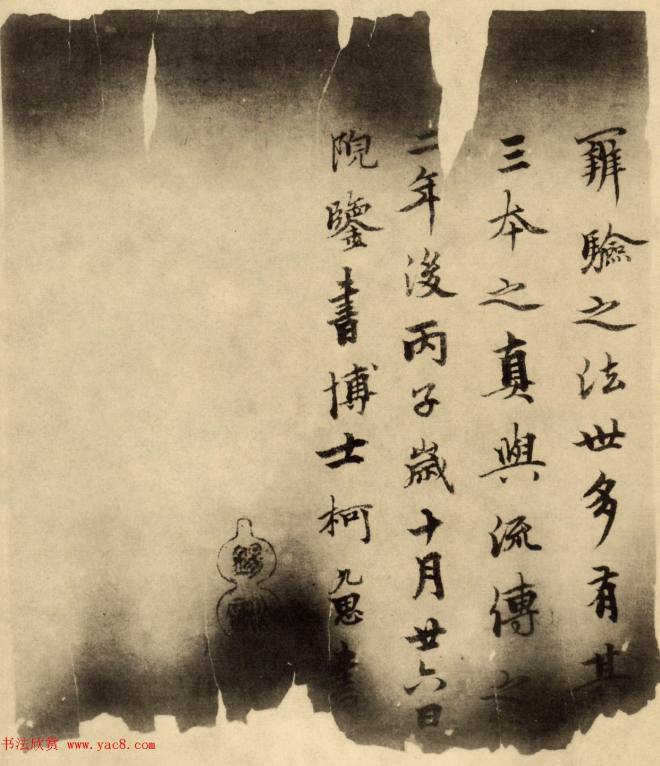 辨驗之法世多有其
三本之真與流傳之
二年後丙子歲十月廿六日
院鑒書博士柯九思書
书法欣赏 www.yac8.com